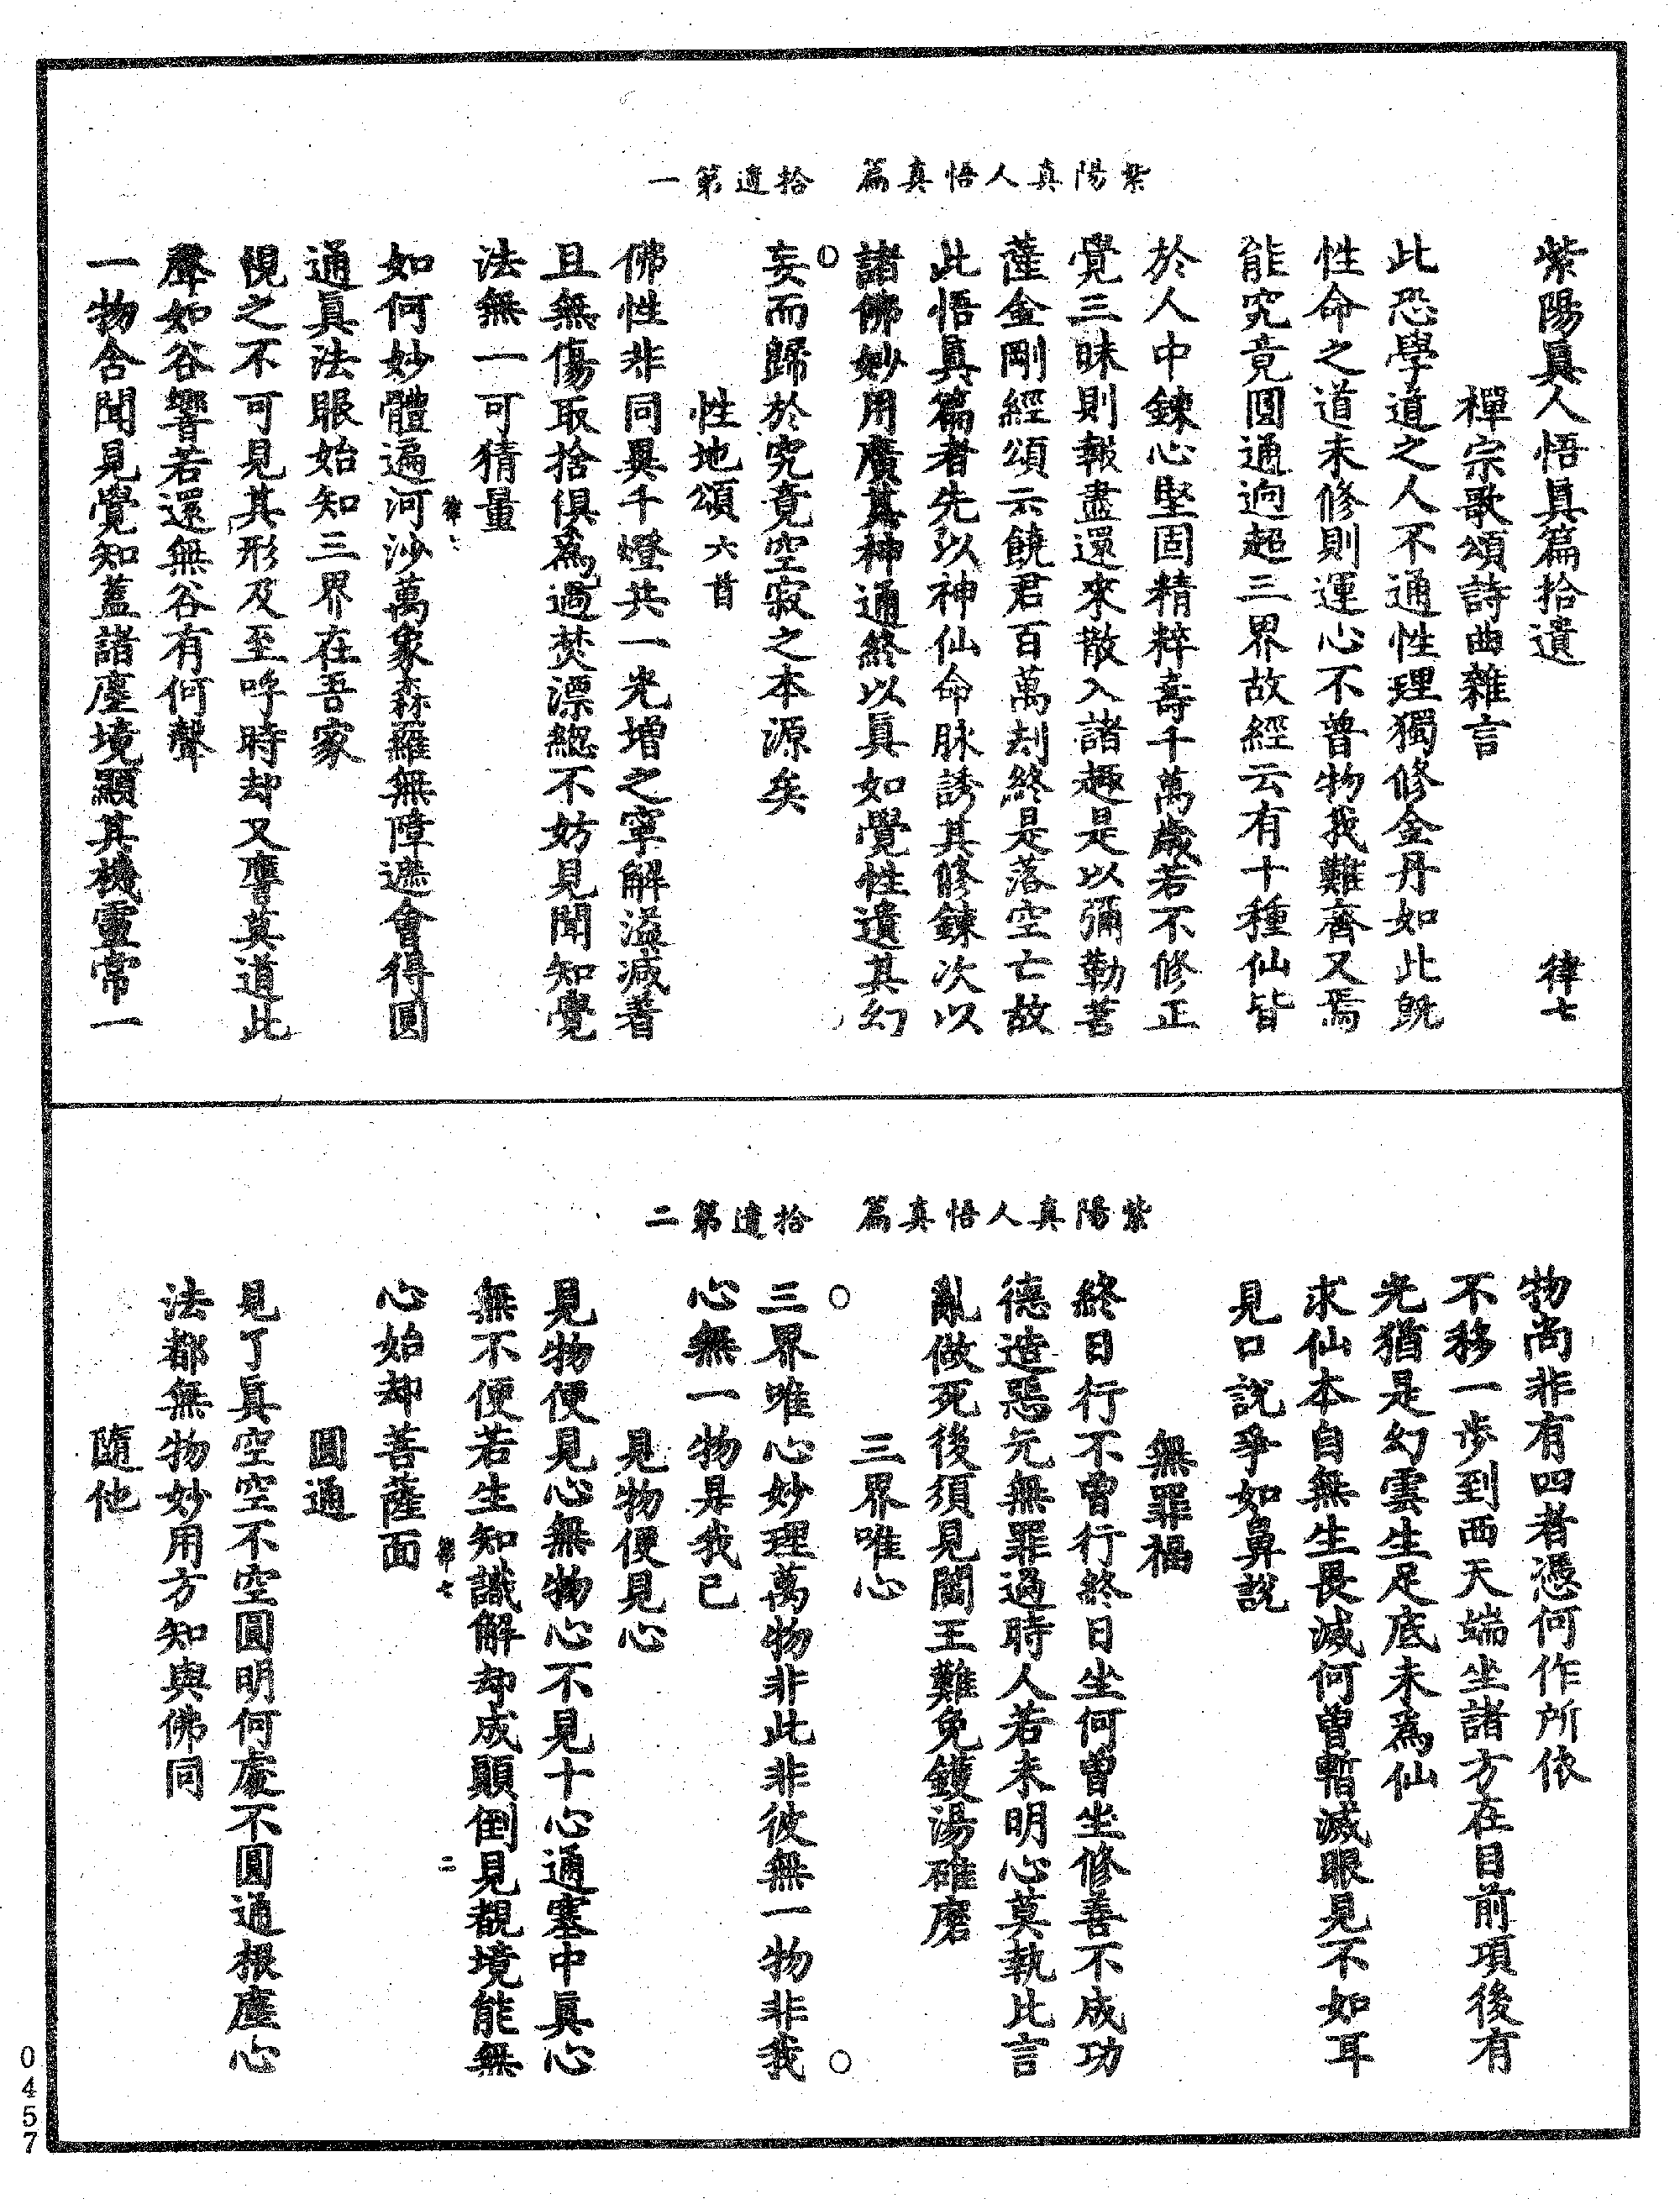 紫陽真人悟真篇　拾遺第一
紫陽眞人悟眞篇拾遺　律七
禪宗歌頌詩曲雜言
此恐學道之人不通性理獨修金丹如此既
性命之道未修則運心不普物我難齊又焉
能究竟圓通逈超三界故經云有十種仙皆
於人中鍊心堅固精粹壽千萬歲若不修正
覺三昧則報盡還來散入諸趣是以彌勒菩
薩金剛經頌云饒君百萬刼終是落空亡故
此悟眞篇者先以神仙命脉誘其修鍊次以
諸佛妙用廣其神通終以眞如覺性遺其幻
妄而歸於究竟空寂之本源矣
性地頌六首
佛性非同異千燈共一光增之寧解溢减著
且無傷取捨俱爲過焚漂緫不妨見聞知覺
法無一可猜量
律七
如何妙體遍河沙萬象森羅無障遮會得圓
通眞法眼始知三界在吾家
覞之不可見其形及至呼時却又譍莫道此
聲如谷響若還無谷有何聲
一物含聞見覺知蓋諸塵境顯其機靈常一
紫陽真人悟真篇　拾遺第二
物尚非有四者憑何作所依
不移一步到西天端坐諸方在目前項後有
光猶是幻雲生足底未爲仙
求仙本自無生畏滅何曾暫滅眼見不如耳
見口說爭如鼻說
無罪福
終日行不曾行終日坐何曾坐修善不成功
德造惡元無罪過時人若未明心莫執此言
亂做死後須見閻王難免鑊湯碓磨
三界唯心
三界唯心妙理萬物非此非彼無一物非我
心無一物是我已
見物便見心
見物便見心無物心不見十心通塞中眞心
無不便若生知識解却成顚倒見覩境能無
律七　二
心始却菩薩面
圓通
見了真空空不空圓明何處不圓通根塵心
法都無物妙用方知與佛同
隨他
0457